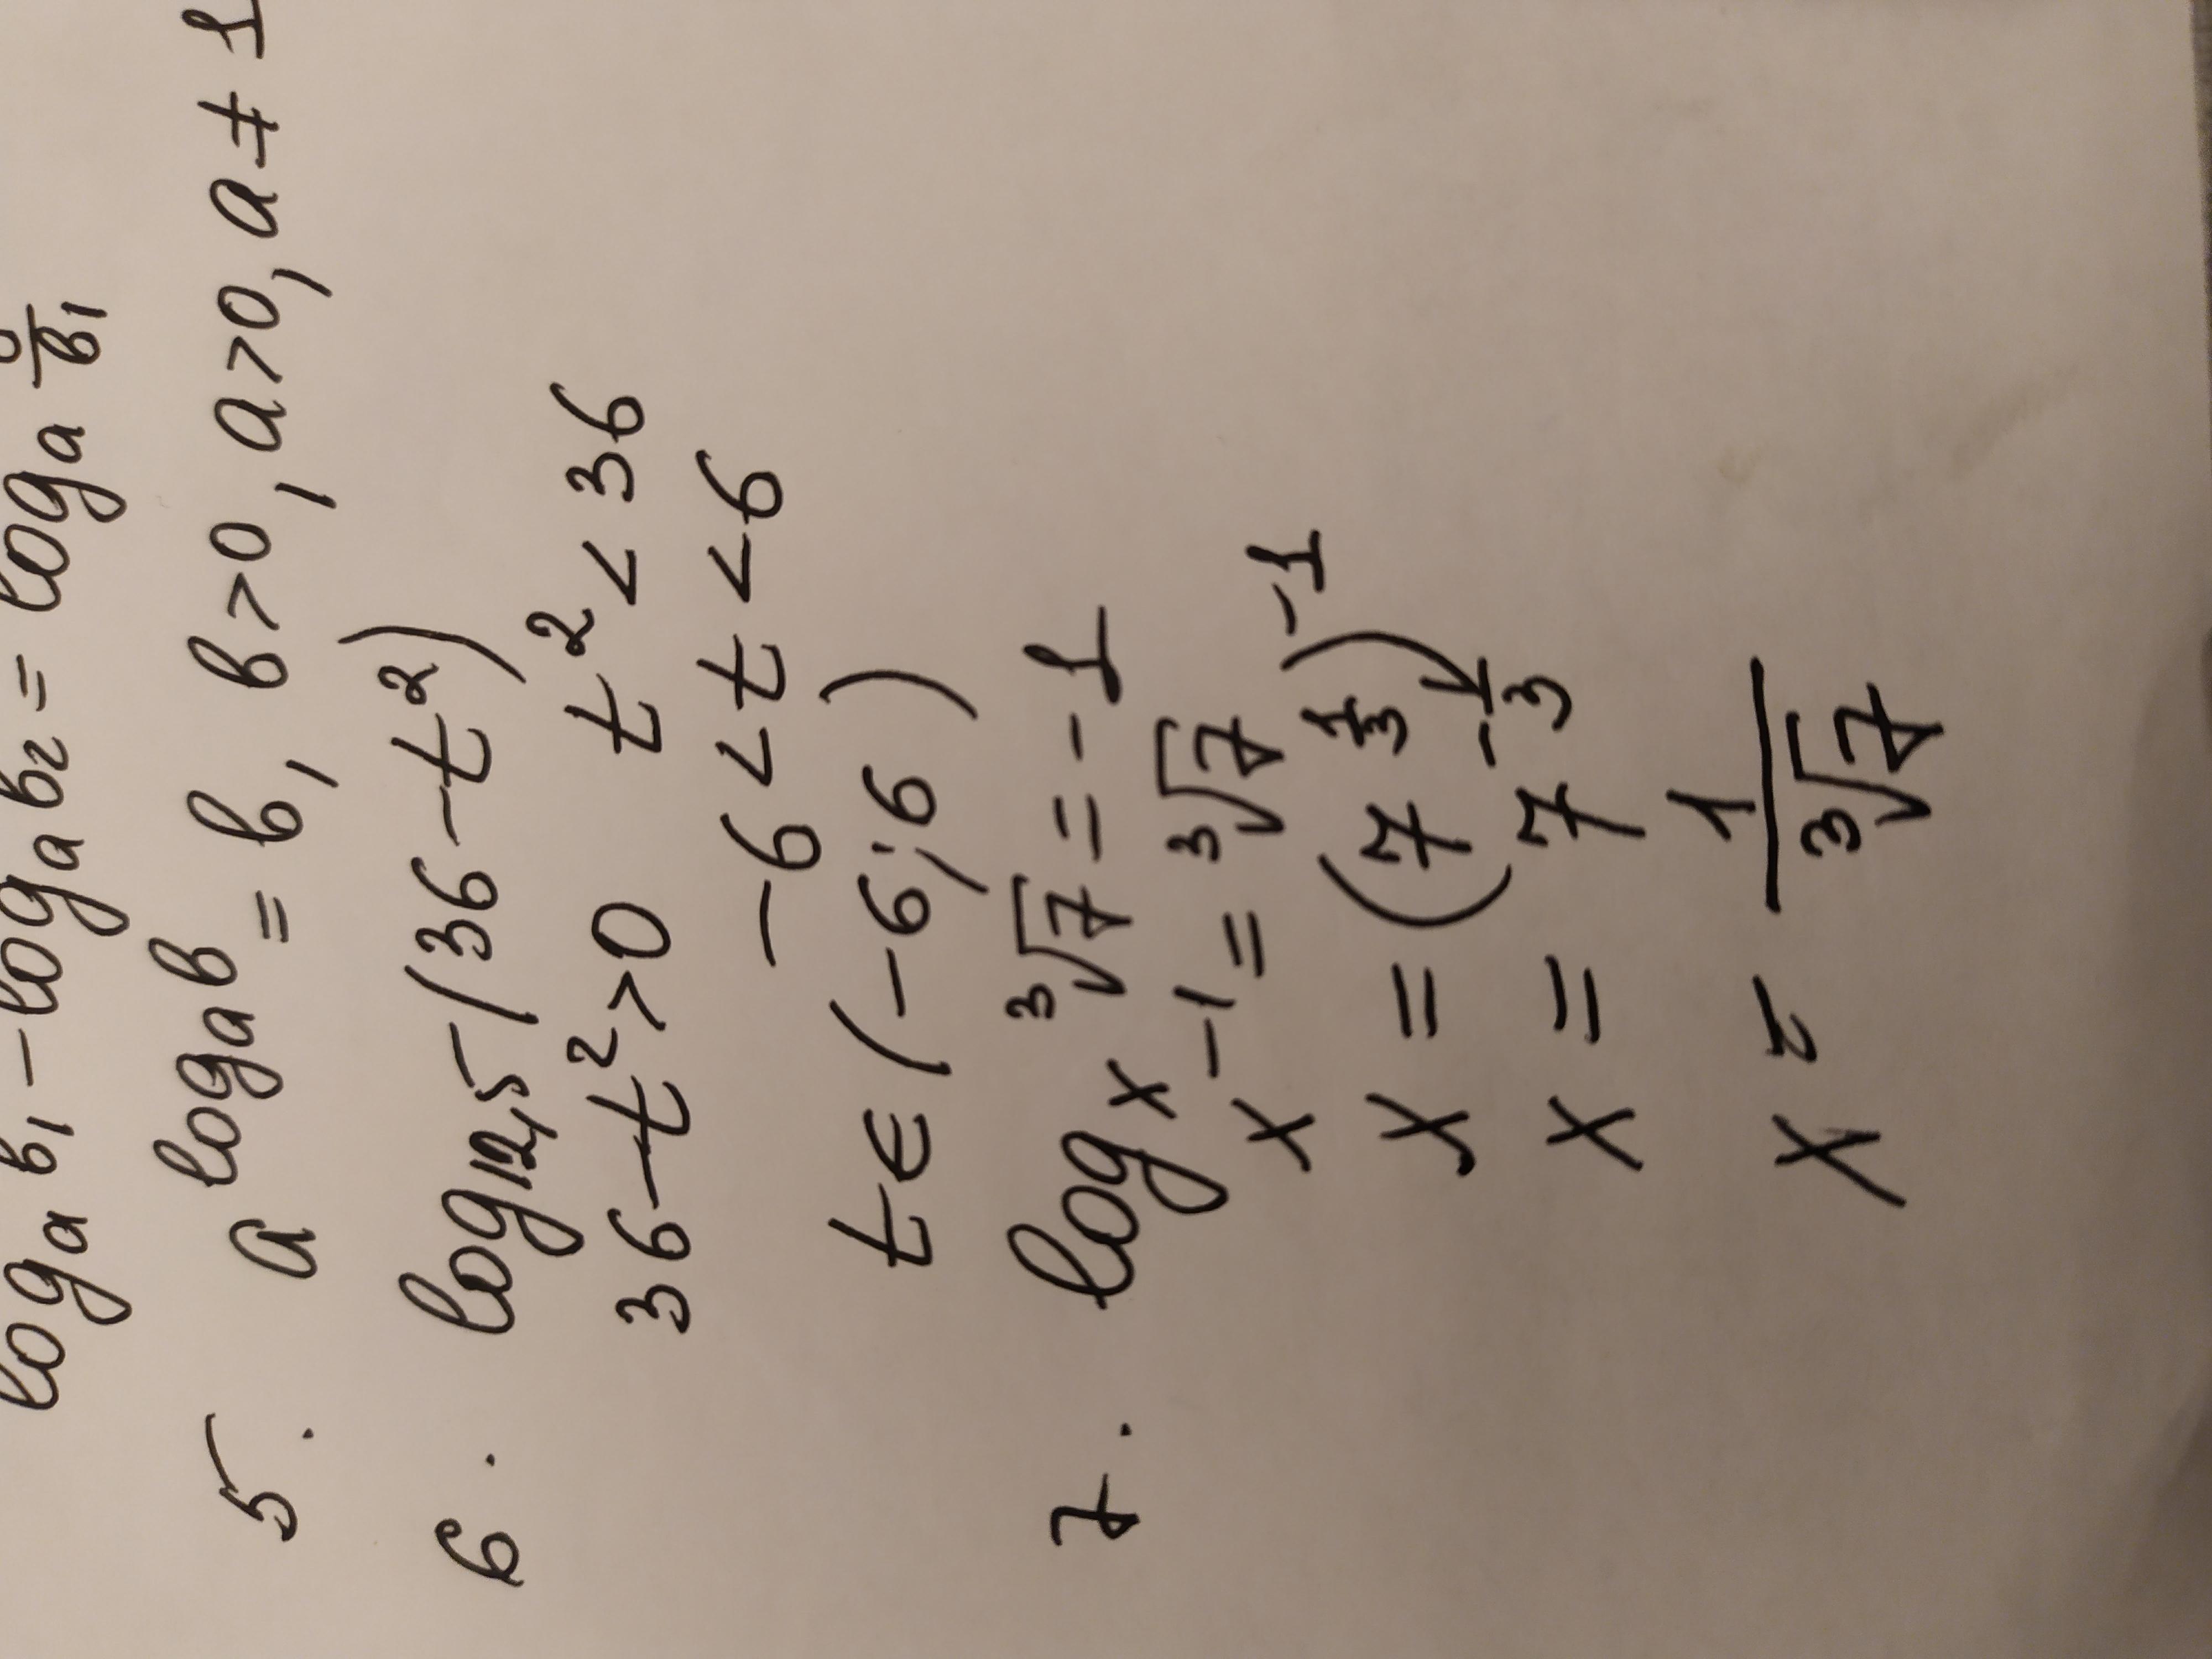 log_a b₁ - log_a b₂ = log_a b/b₁
5. a^(log_a b) = b, b>0, a>0, a≠1
6. log_12,5 (36-t²)
36-t²>0 t²<36
-6<t<6
t∈(-6;6)
7. log_x ³√7 = -1
x⁻¹ = ³√7
x = (7^(1/3))⁻¹
x = 7^(-1/3)
x = 1/³√7